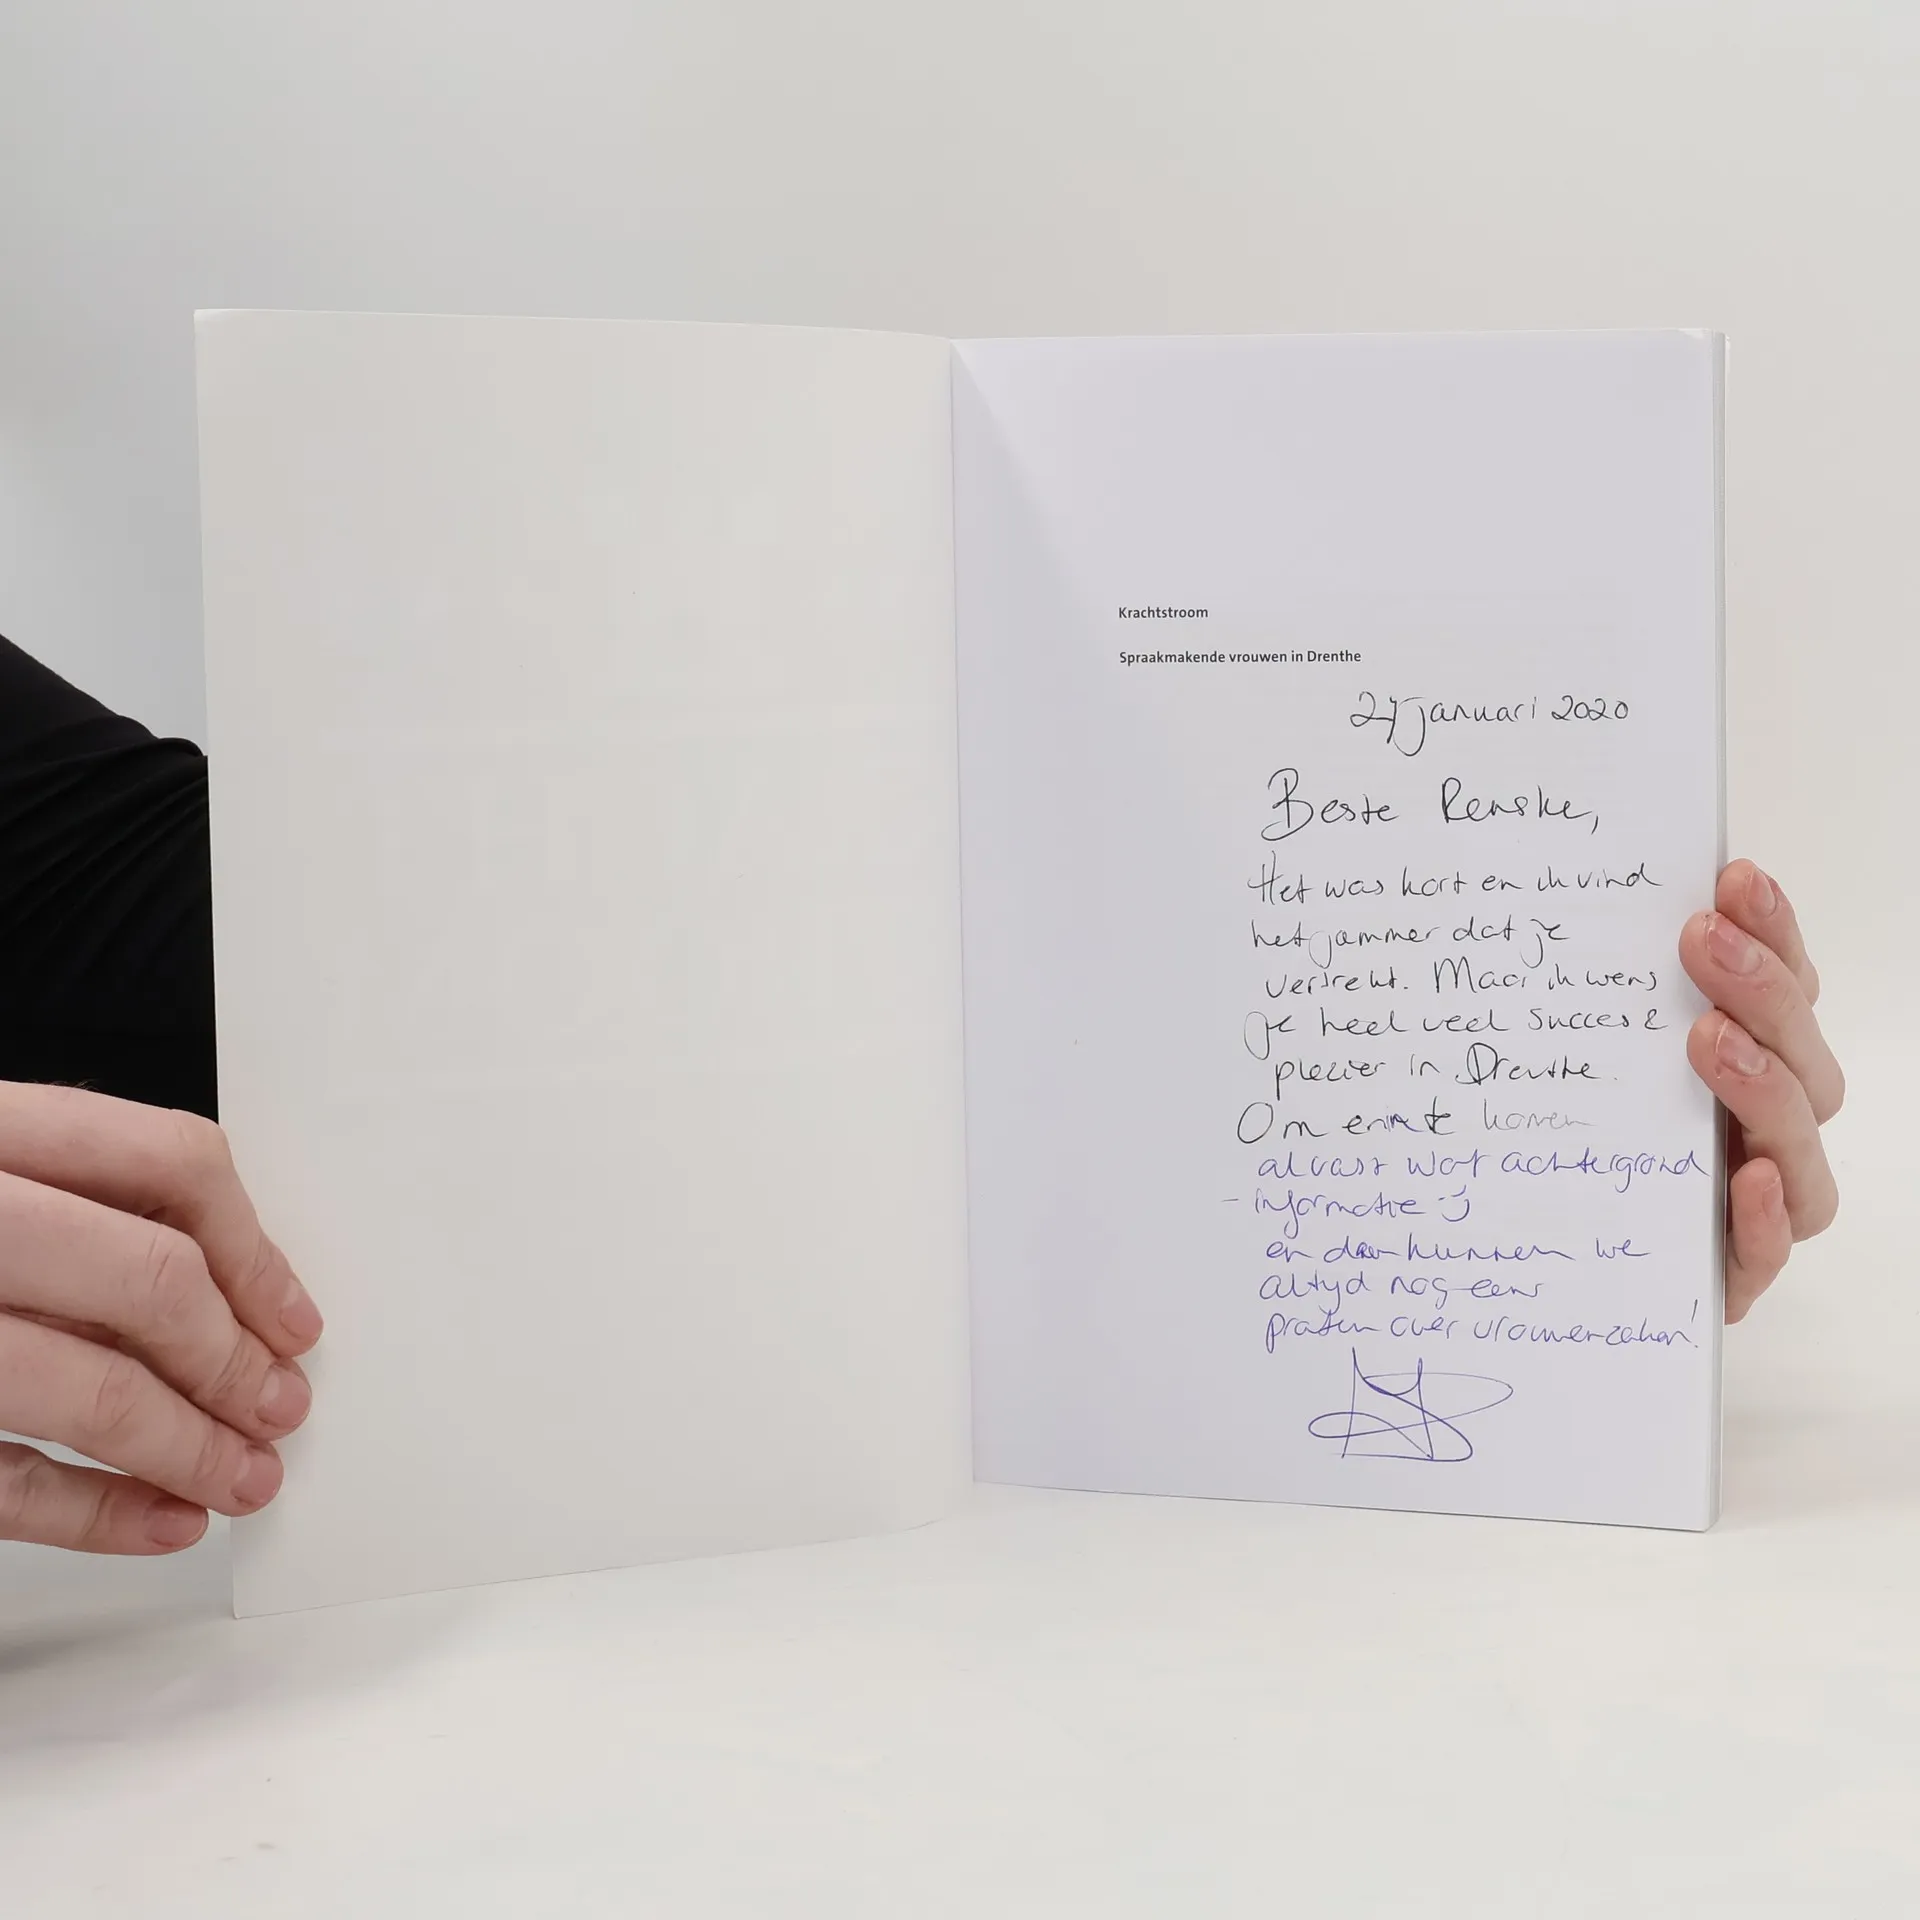 Krachtstroom
Spraakmakende vrouwen in Drenthe
27 januari 2020
Beste Renske,
Het was kort en ik vind
het jammer dat je
vertrekt. Maar ik wens
je heel veel succes &
plezier in Drenthe.
Om erin te komen
alvast wat achtergrond
- informatie :-)
en dan kunnen we
altijd nog eens
praten over vrouwenzaken!